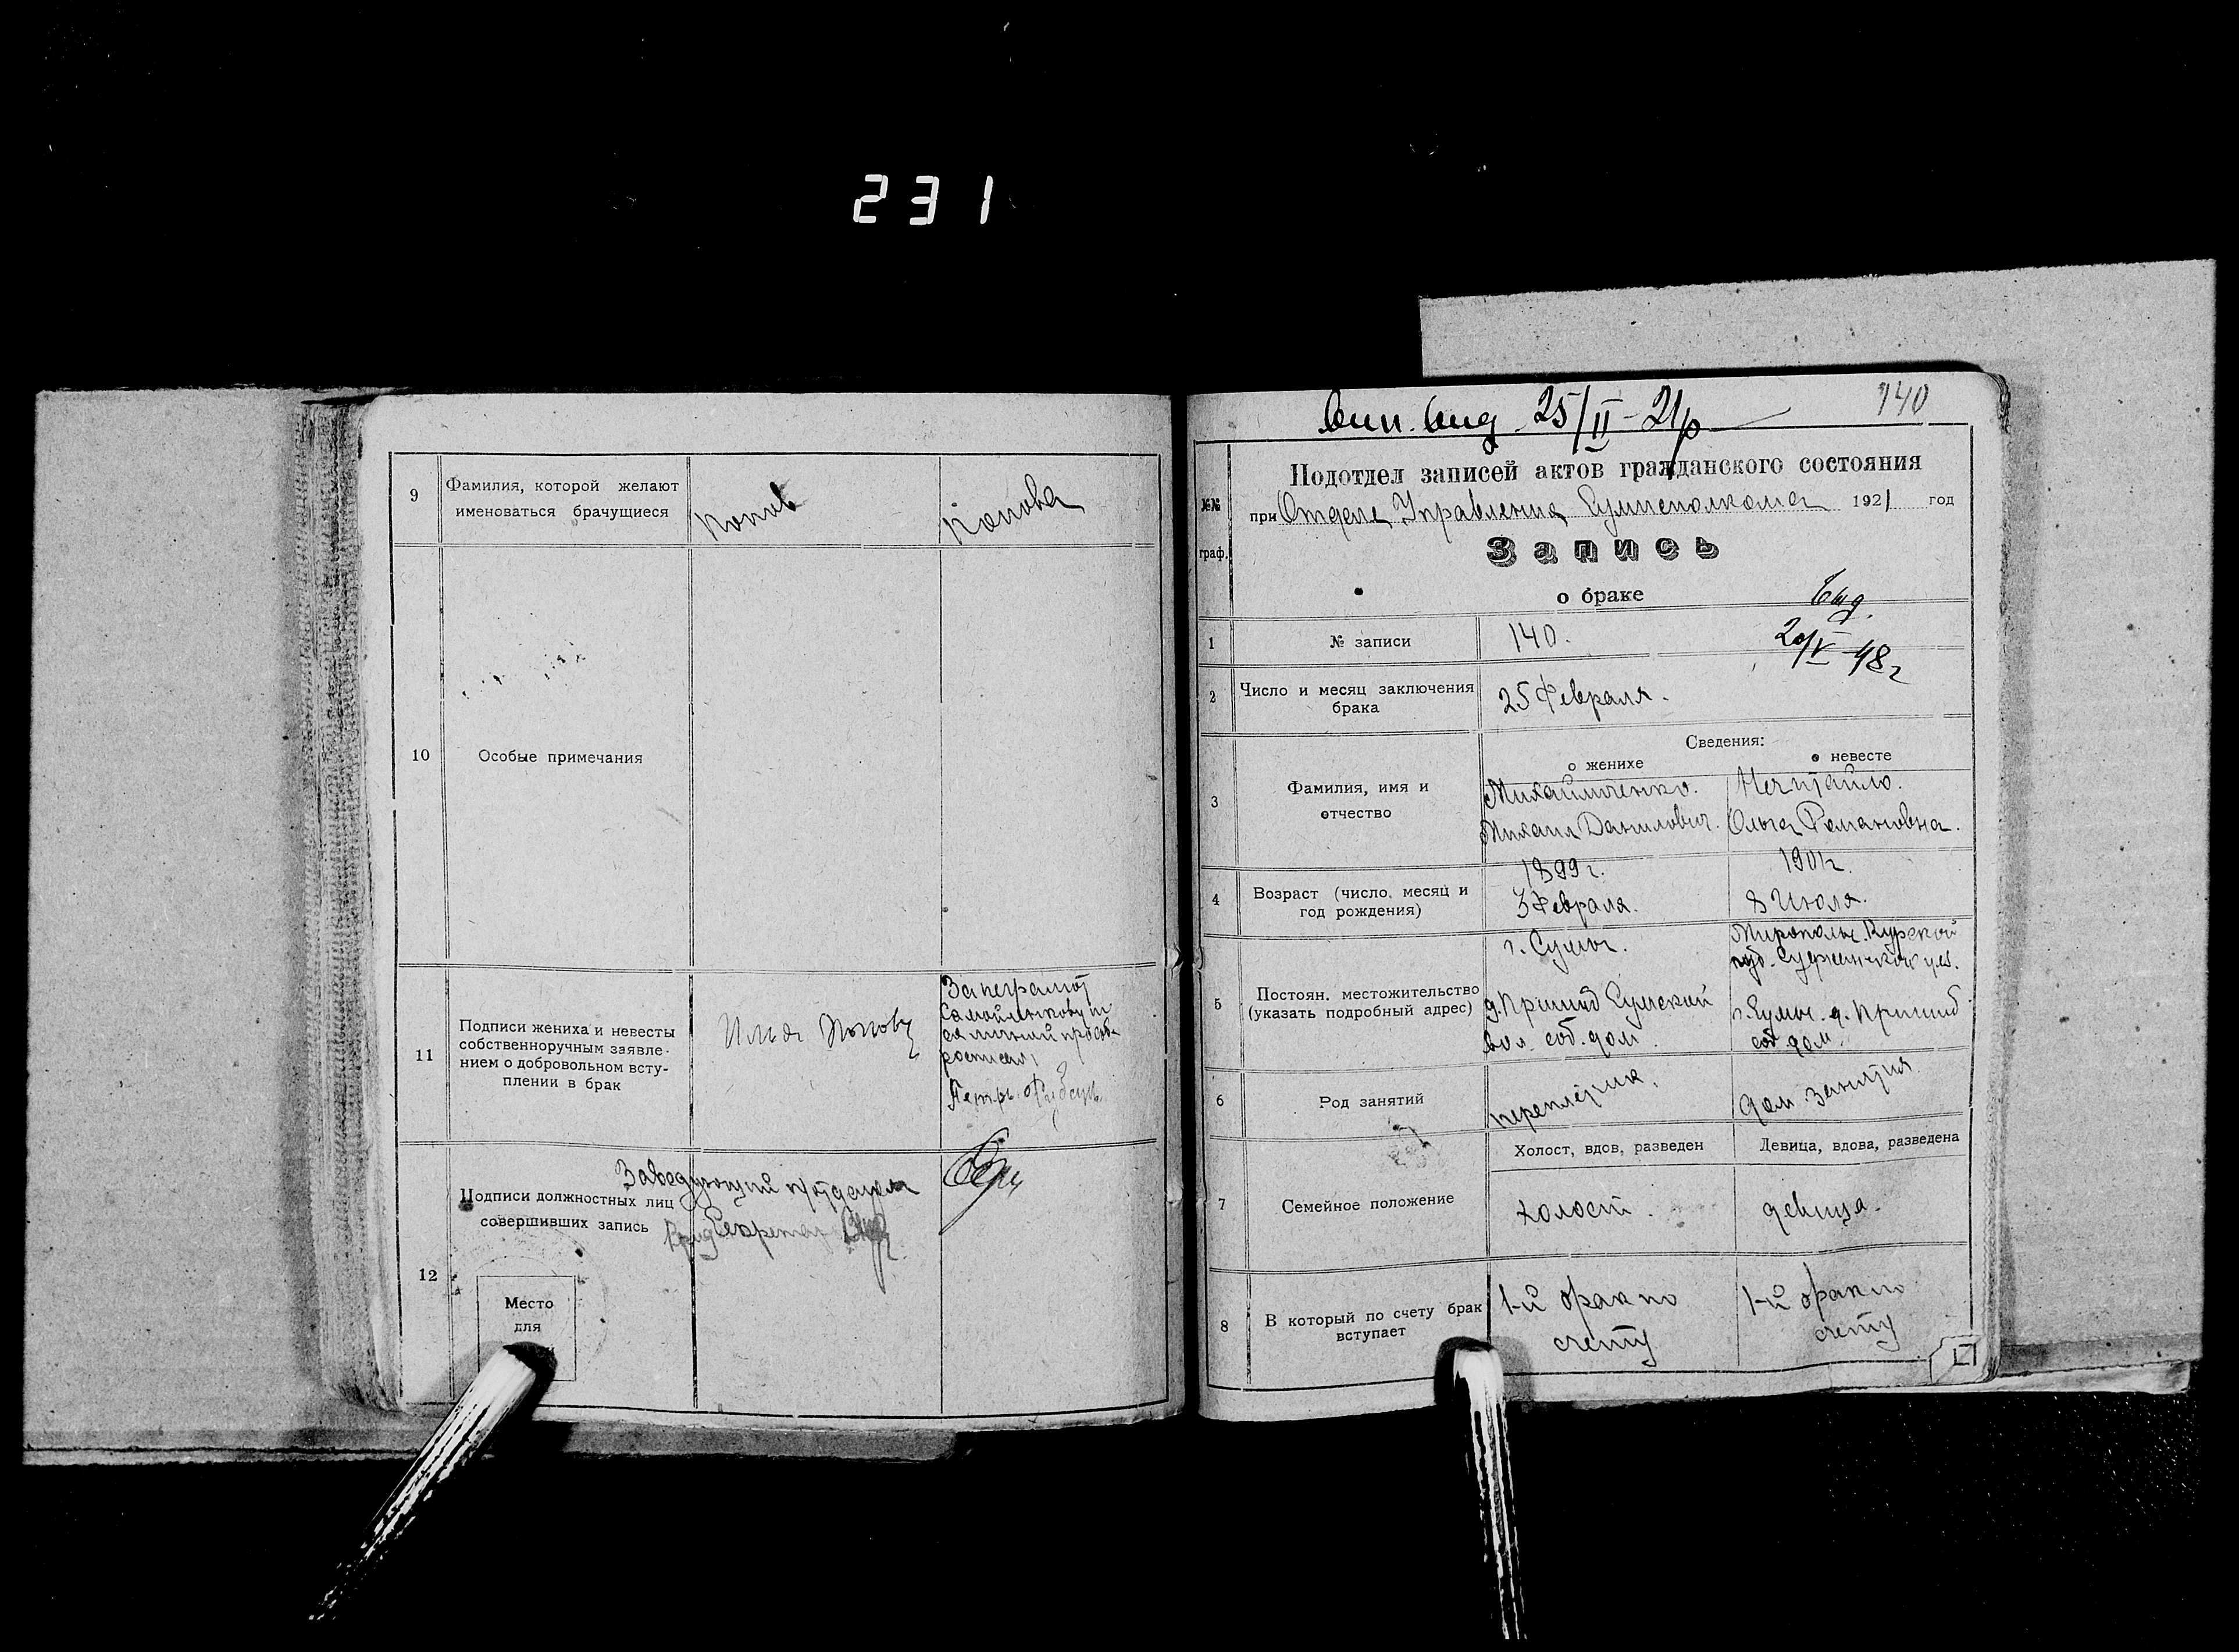 231
9
Фамилия, которой желают
именоваться брачущиеся
Попов
Попова
10
Особые примечания
11
Подписи жениха и невесты
собственноручным заявле-
нием о добровольном всту-
плении в брак
Илья Попов
За неграмот
личной прось
росписал
Петр
12
Подписи должностных лиц
совершивших запись
Заведующий п/отделом
Секретар
Место
для
вып. вид 25/II-21р
140
№№
граф.
Подотдел записей актов гражданского состояния
при Отделе Управления 1921 год
Запись
о браке
Выд.
20/V-48г
1
№ записи
140.
2
Число и месяц заключения
брака
25 Февраля.
Сведения:
о женихе
о невесте
3
Фамилия, имя и
отчество
Михайличенко.
Михаил Данилович.
Нечитайло.
Ольга Романовна.
4
Возраст (число, месяц и
год рождения)
1899 г.
3 Февраля.
1901г.
8 Июля.
5
Постоян. местожительство
(указать подробный адрес)
г. Сумы.
д. Пришиб Сумской
вол. соб. дом.
Мирополье Курской
губ. Суджанской у.
г. Сумы. д. Пришиб
соб. дом.
6
Род занятий
переплетчик.
Дом. занятия
7
Семейное положение
Холост, вдов, разведен
Девица, вдова, разведена
холост.
девица.
8
В который по счету брак
вступает
1-й брак по
счету
1-й брак по
счету